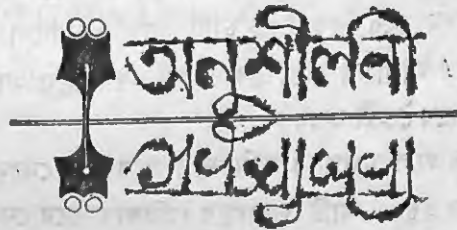 অনুশীলনী